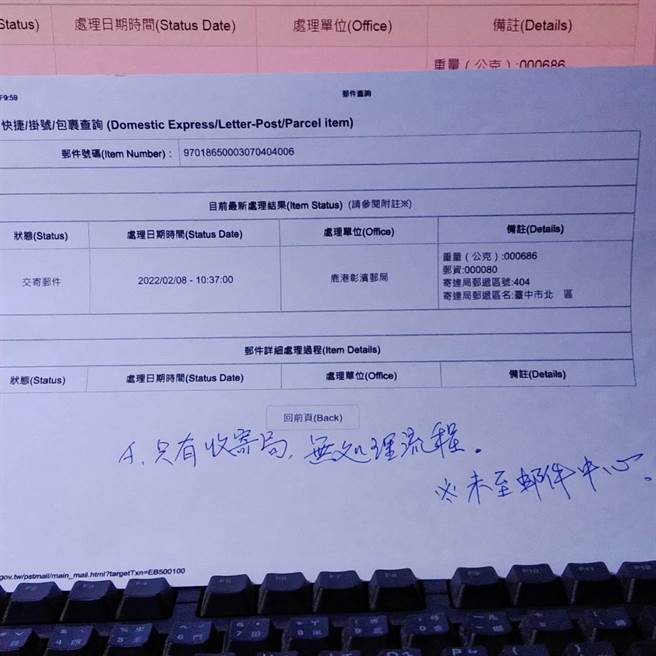 Status) 處理日期時間(Status Date) 處理單位(Office) 備註(Details)
重量（公克）:000686
F9:59 郵件查詢
快捷/掛號/包裹查詢 (Domestic Express/Letter-Post/Parcel item)
郵件號碼(Item Number) : 97018650003070404006
目前最新處理結果(Item Status) (請參閱附註※)
狀態(Status) 處理日期時間(Status Date) 處理單位(Office) 備註(Details)
交寄郵件 2022/02/08 - 10:37:00 鹿港彰濱郵局 重量（公克）:000686
郵資:000080
寄達局郵遞區號:404
寄達局郵遞區名:臺中市北 區
郵件詳細處理過程(Item Details)
狀態(Status) 處理日期時間(Status Date) 處理單位(Office) 備註(Details)
回前頁(Back)
只有收寄局，無処理流程。
※未至郵件中心。
gov.tw/pstmail/main_mail.html?targetTxn=EB500100